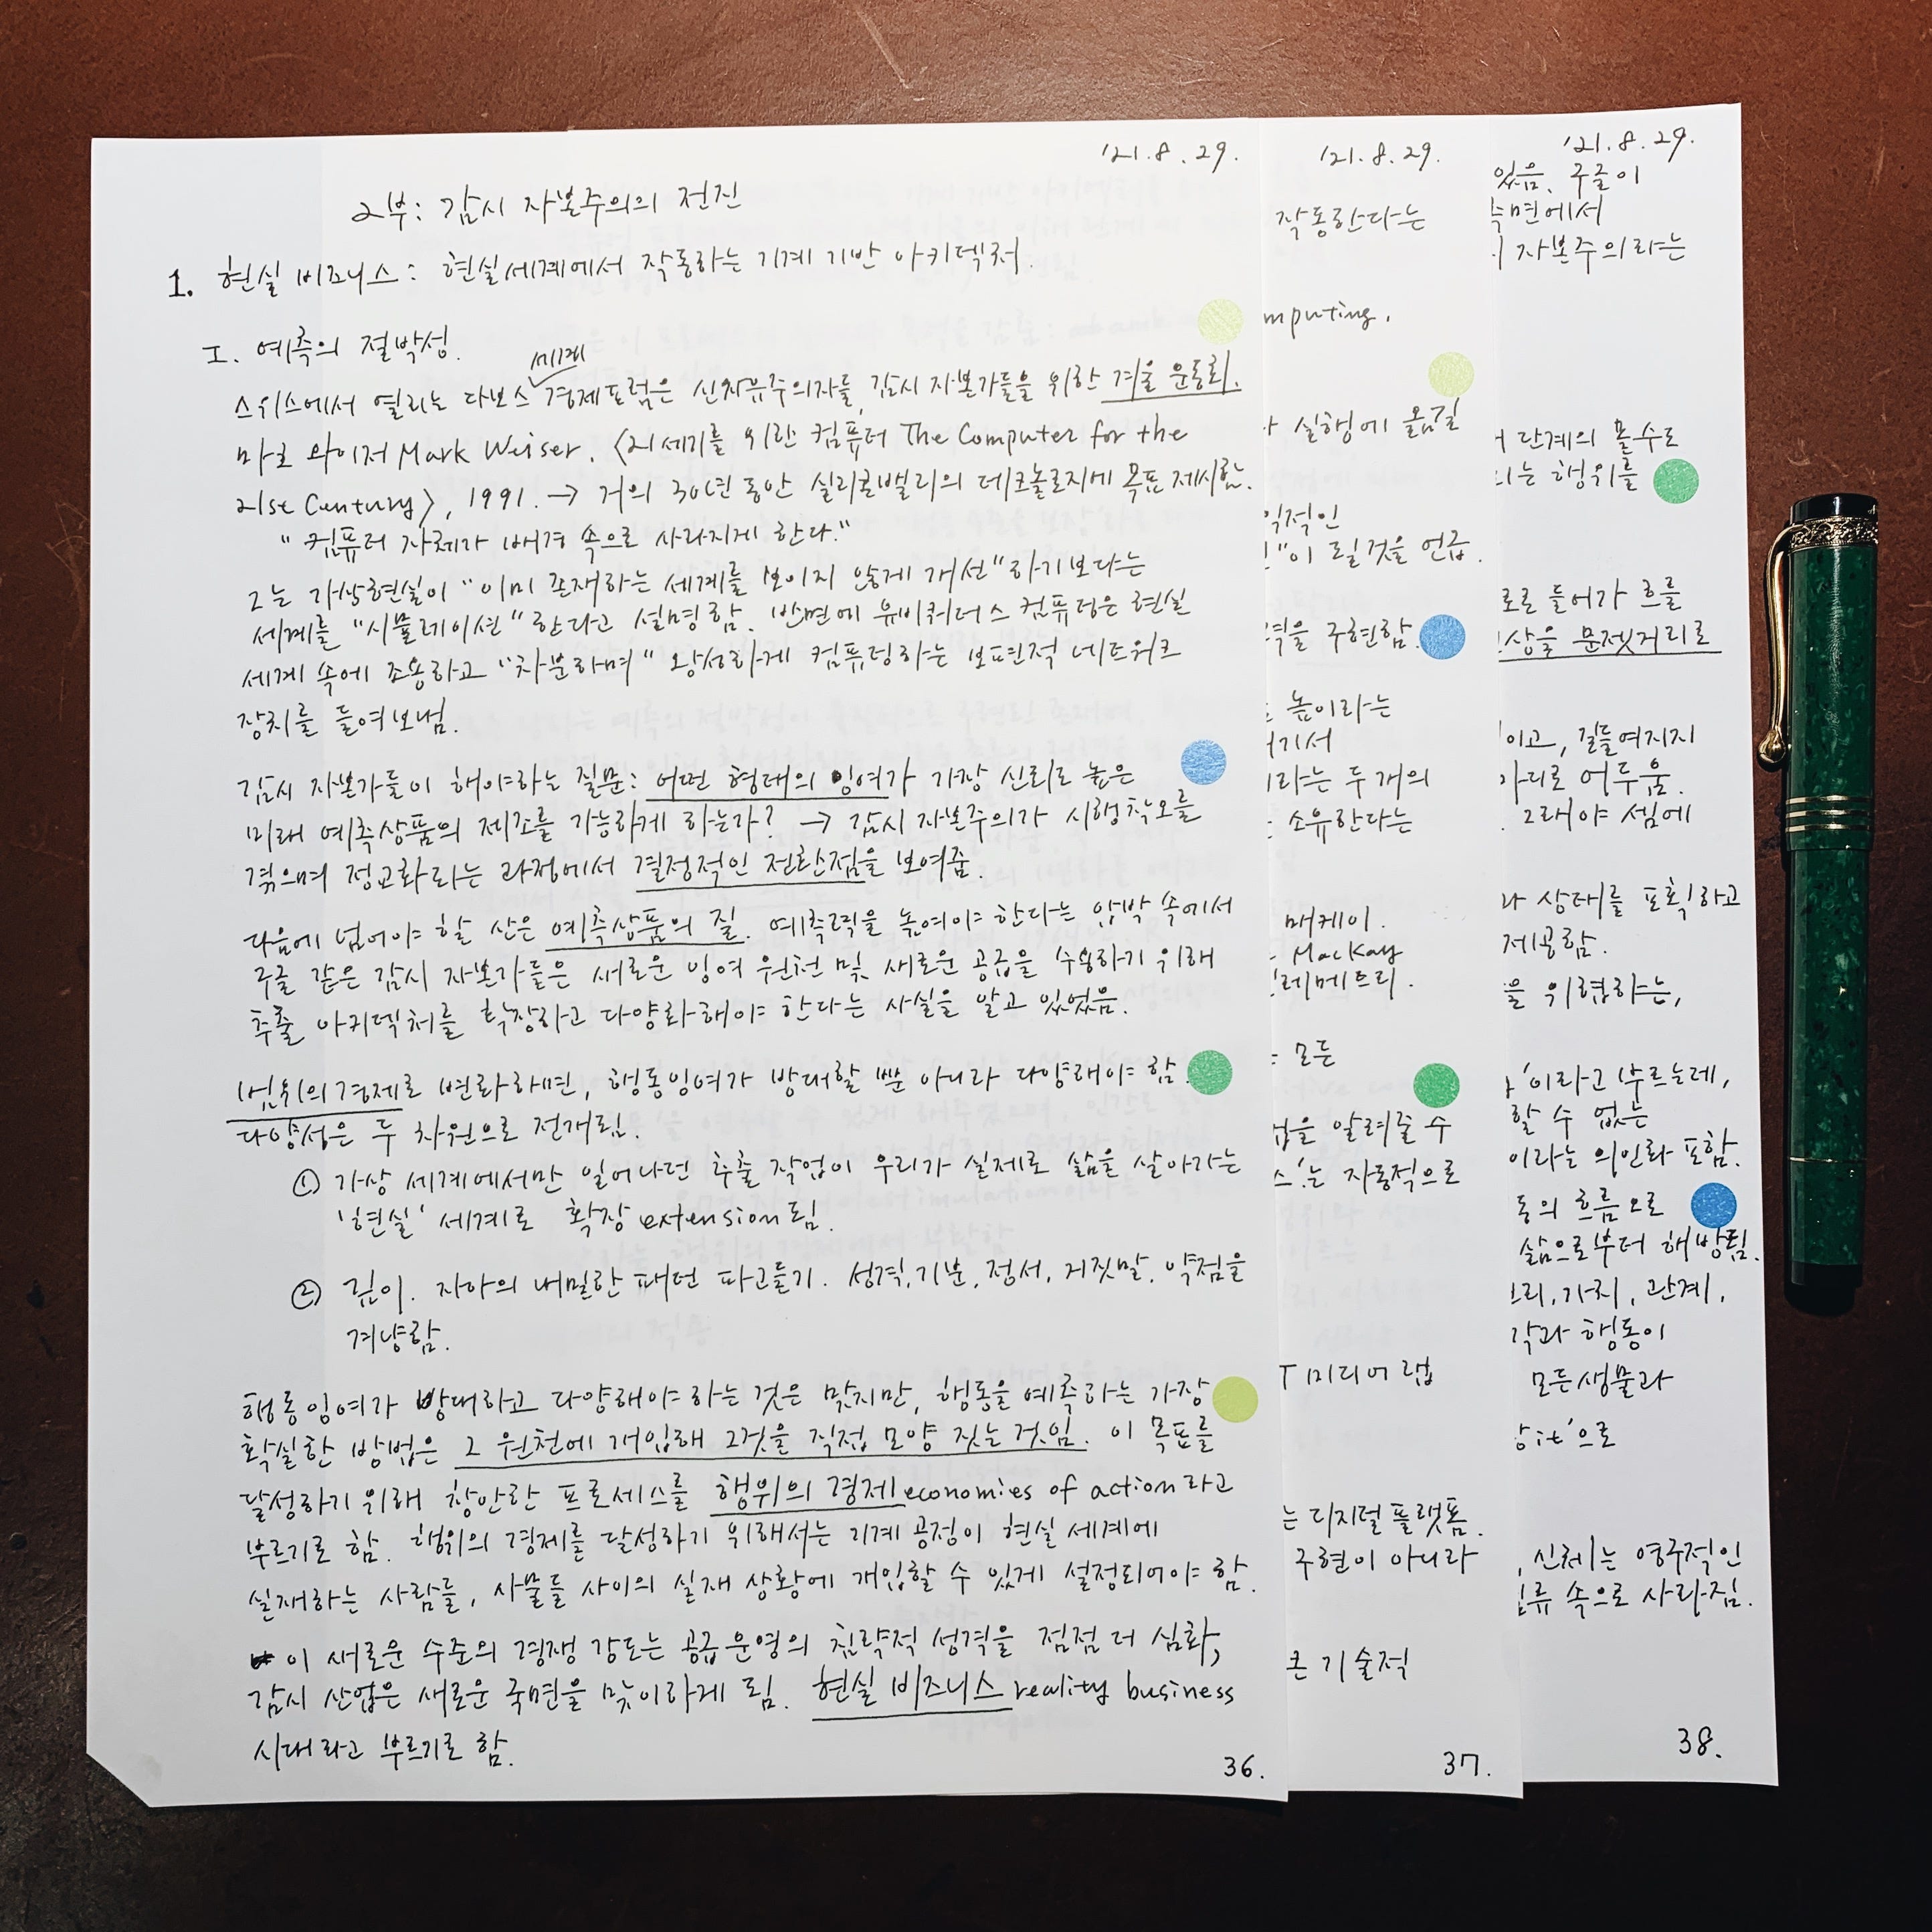 '21.8.29.
2부: 감시 자본주의의 전진
1. 현실 비즈니스: 현실세계에서 작동하는 기계 기반 아키텍처.
I. 예측의 절박성.
세계
스위스에서 열리는 다보스 경제포럼은 신자유주의자들, 감시 자본가들을 위한 겨울 운동회.
마크 와이저 Mark Weiser. <21세기를 위한 컴퓨터 The Computer for the
21st Century>, 1991. → 거의 30년 동안 실리콘밸리의 테크놀로지에 목표 제시함.
"컴퓨터 자체가 배경 속으로 사라지게 한다."
그는 가상현실이 "이미 존재하는 세계를 보이지 않게 개선"하기보다는
세계를 "시뮬레이션"한다고 설명함. 반면에 유비쿼터스 컴퓨팅은 현실
세계 속에 조용하고 "차분하며" 왕성하게 컴퓨팅하는 보편적 네트워크
장치를 들여보냄.
감시 자본가들이 해야하는 질문: 어떤 형태의 잉여가 가장 신뢰도 높은
미래 예측상품의 제조를 가능하게 하는가? → 감시 자본주의가 시행착오를
겪으며 정교화되는 과정에서 결정적인 전환점을 보여줌.
다음에 넘어야 할 산은 예측상품의 질. 예측력을 높여야 한다는 압박 속에서
구글 같은 감시 자본가들은 새로운 잉여 원천 및 새로운 공급을 수용하기 위해
추출 아키텍처를 확장하고 다양화해야 한다는 사실을 알고 있었음.
범위의 경제로 변화하면, 행동잉여가 방대할 뿐 아니라 다양해야 함.
다양성은 두 차원으로 전개됨.
① 가상 세계에서만 일어나던 추출 작업이 우리가 실제로 삶을 살아가는
'현실' 세계로 확장 extension됨.
② 깊이. 자아의 내밀한 패턴 파고들기. 성격, 기분, 정서, 거짓말, 약점을
겨냥함.
행동잉여가 방대하고 다양해야 하는 것은 맞지만, 행동을 예측하는 가장
확실한 방법은 그 원천에 개입해 그것을 직접 모양 짓는 것임. 이 목표를
달성하기 위해 창안한 프로세스를 행위의 경제 economies of action라고
부르기로 함. 행위의 경제를 달성하기 위해서는 기계 공정이 현실 세계에
실재하는 사람들, 사물들 사이의 실재 상황에 개입할 수 있게 설정되어야 함.
이 새로운 수준의 경쟁 강도는 공급 운영의 침략적 성격을 점점 더 심화,
감시 산업은 새로운 국면을 맞이하게 됨. 현실 비즈니스 reality business
시대라고 부르기로 함.
36.
'21.8.29.
작동한다는
mputing.
실행에 옮길
"이 될 것을 언급.
구현함.
높이라는
라는 두 개의
소유한다는
매케이.
MacKay
레메트리.
모든
알려줄 수
스'는 자동적으로
T 미디어랩
는 디지털 플랫폼.
구현이 아니라
기술적
37.
'21.8.29.
있음. 구글이
측면에서
자본주의라는
단계의 몰수로
되는 행위를
로 들어가 흐를
상을 문젯거리로
이고, 길들여지지
어두움.
. 그래야 셈에
상태를 포획하고
제공함.
을 위협하는,
'이라고 부르는데,
할 수 없는
이라는 의인화 포함.
동의 흐름으로
삶으로부터 해방됨.
가치, 관계,
각과 행동이
모든 생물과
it'으로
, 신체는 영구적인
류 속으로 사라짐.
38.